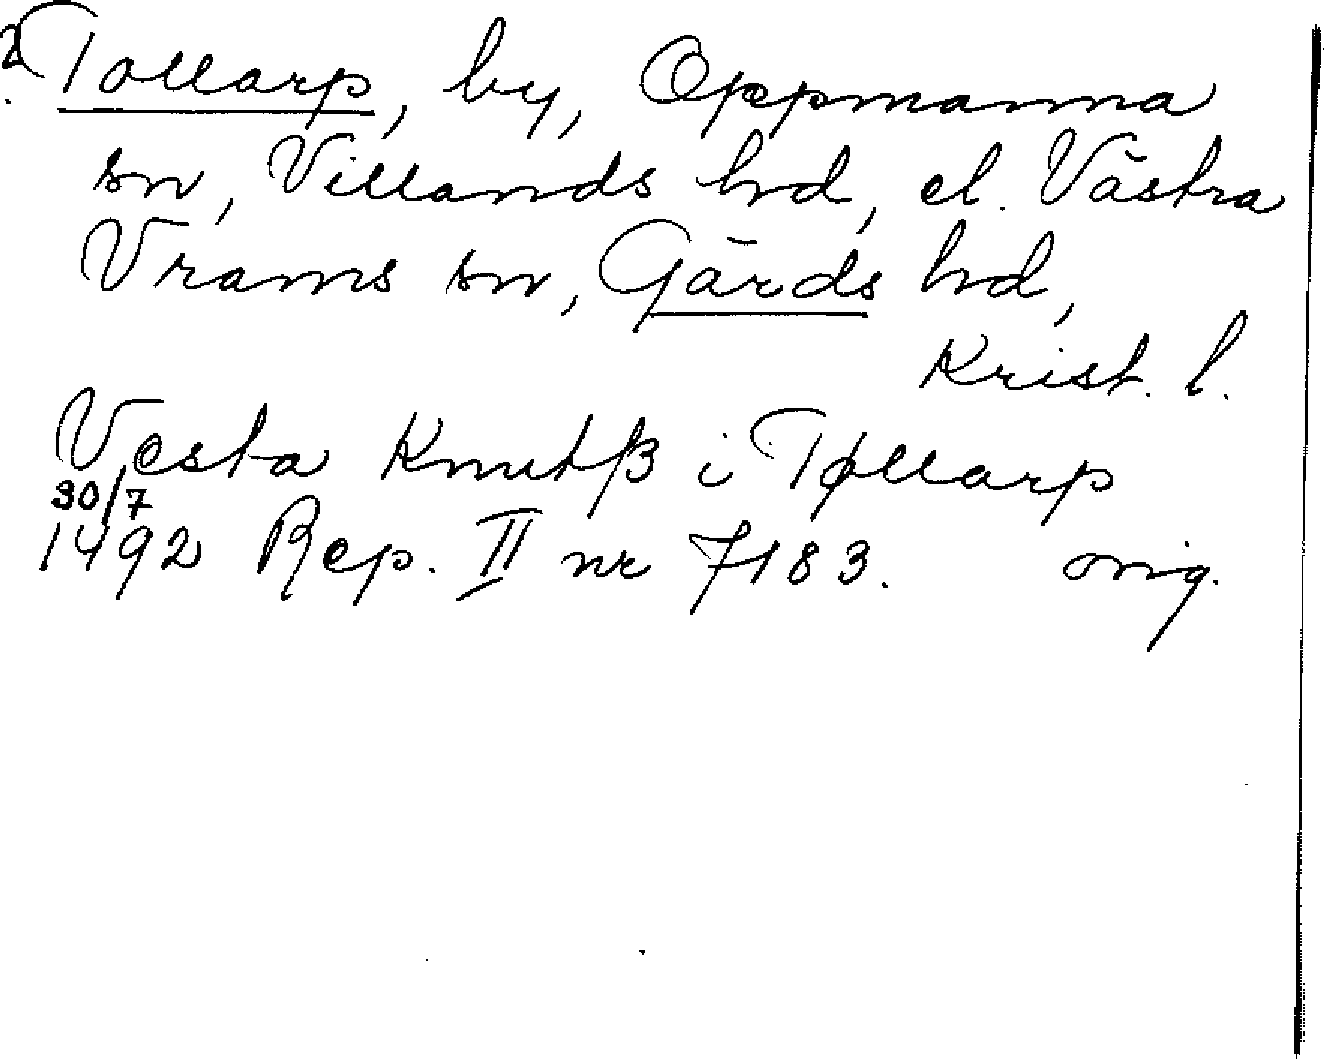 2. Tollarp, by, Oppmanna
sn, Villands hd, el. Västra
Vrams sn, Gärds hd,
Krist. l.
Vesta Knutß i Tøllarp
30/7
1492 Rep. II nr 7183. orig.